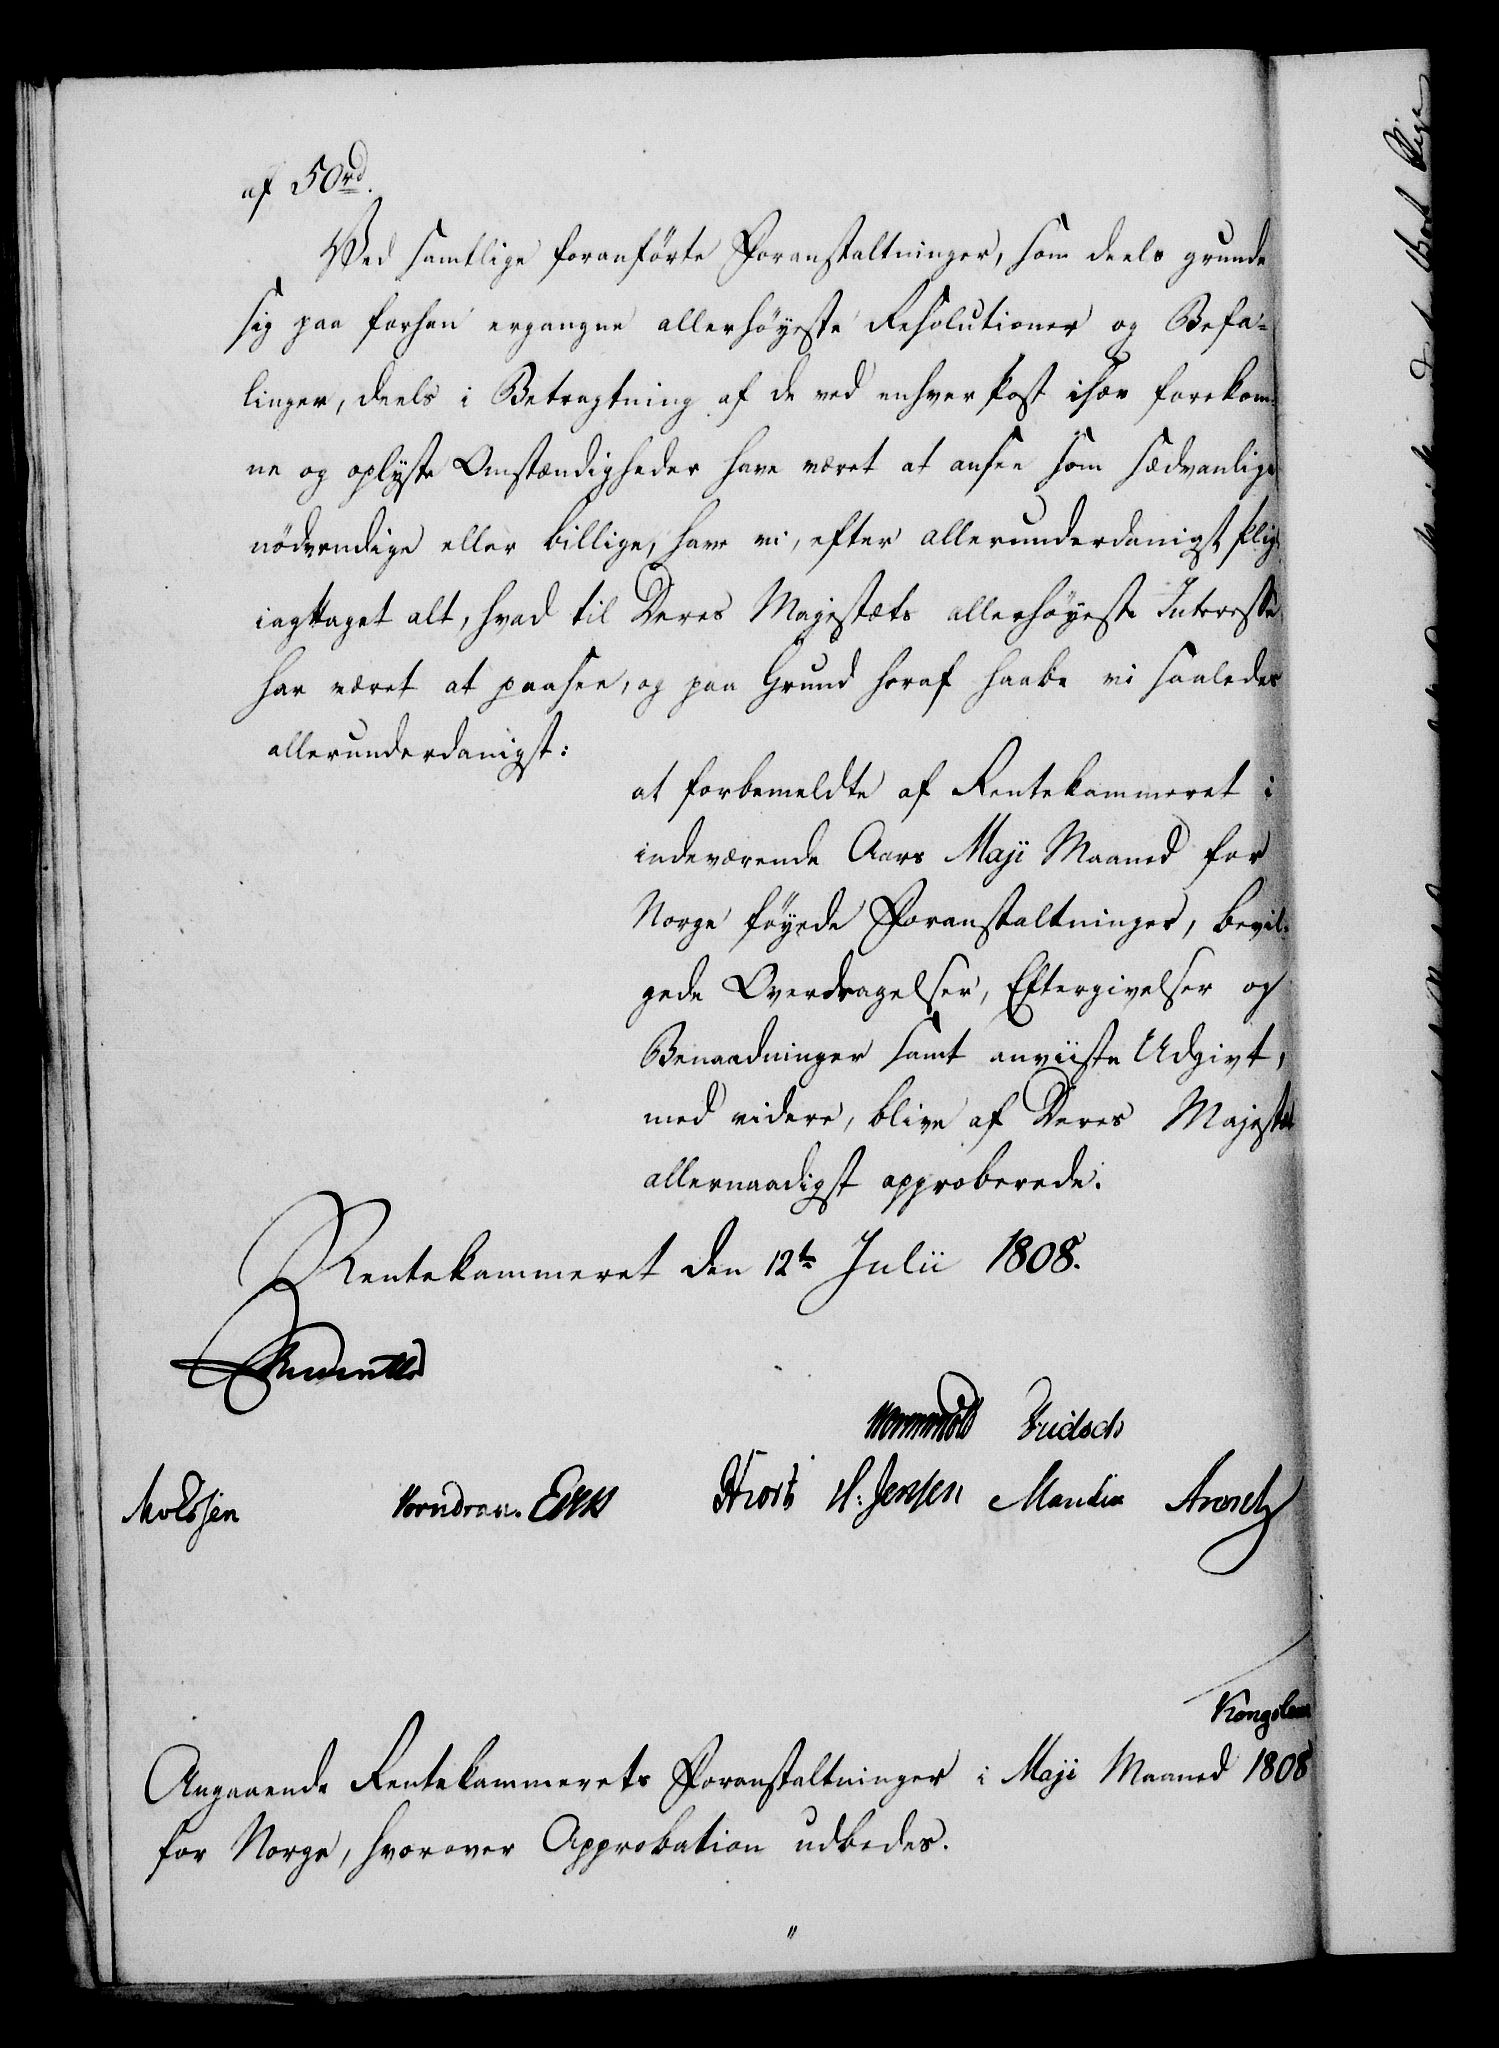 af 50rd.
Ved samtlige foranförte Foranstaltninger, som deels grunde
sig paa forhen ergangne allerhöyeste Resolutioner og Befa-
linger, deels i Betragtning af de ved enhver Post især forekom-
ne og oplyste Omstændigheder have været at ansee som sædvanlige
nödvendige eller billige, have vi, efter allerunderdanigst Pligt
iagttaget alt, hvad til Deres Majestæts allerhöyeste Interesse
har været at paasee, og paa Grund heraf haabe vi saaledes
allerunderdanigst:
at forbemeldte af Rentekammeret i
indeværende Aars Maji Maaned for
Norge föyede Foranstaltninger, bevil-
gede Overdragelser, Eftergivelser og
Benaadninger samt anviiste Udgivt,
med videre, blive af Deres Majestæt
allernaadigst approberede.
Rentekammeret den 12te Julii 1808.
Reventlow
Wormskiold
Knudsen Eskes Hiort H: Jensen Manthix Arentz
Kongelev
Angaaende Rentekammerets Foranstaltninger i Maji Maaned 1808
for Norge, hvorover Approbation udbedes.